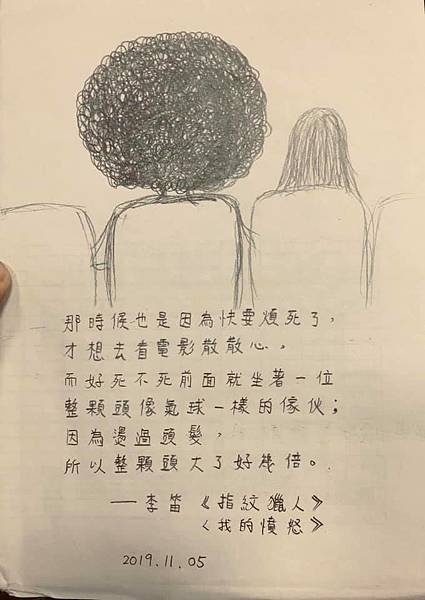 那時候也是因為快要煩死了，
才想去看電影散散心。
而好死不死前面就坐著一位
整顆頭像氣球一樣的傢伙；
因為燙過頭髮，
所以整顆頭大了好幾倍。
——李笛《指紋獵人》
〈我的憤怒》
2019.11.05